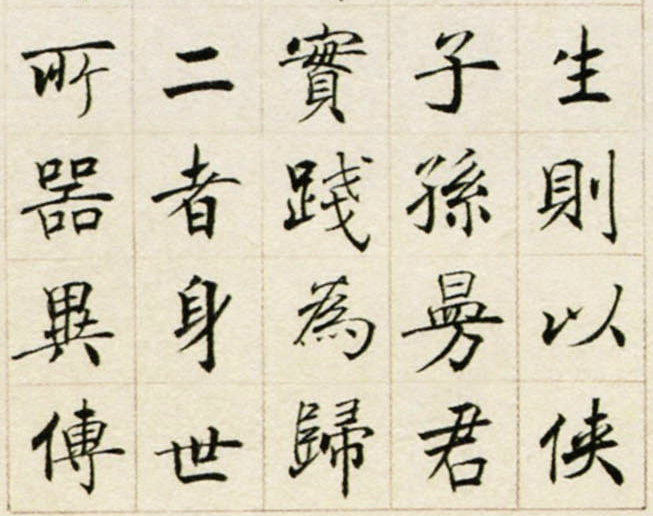 生則以俠
子孫昜君
實踐為歸
二者身世
所器異傳